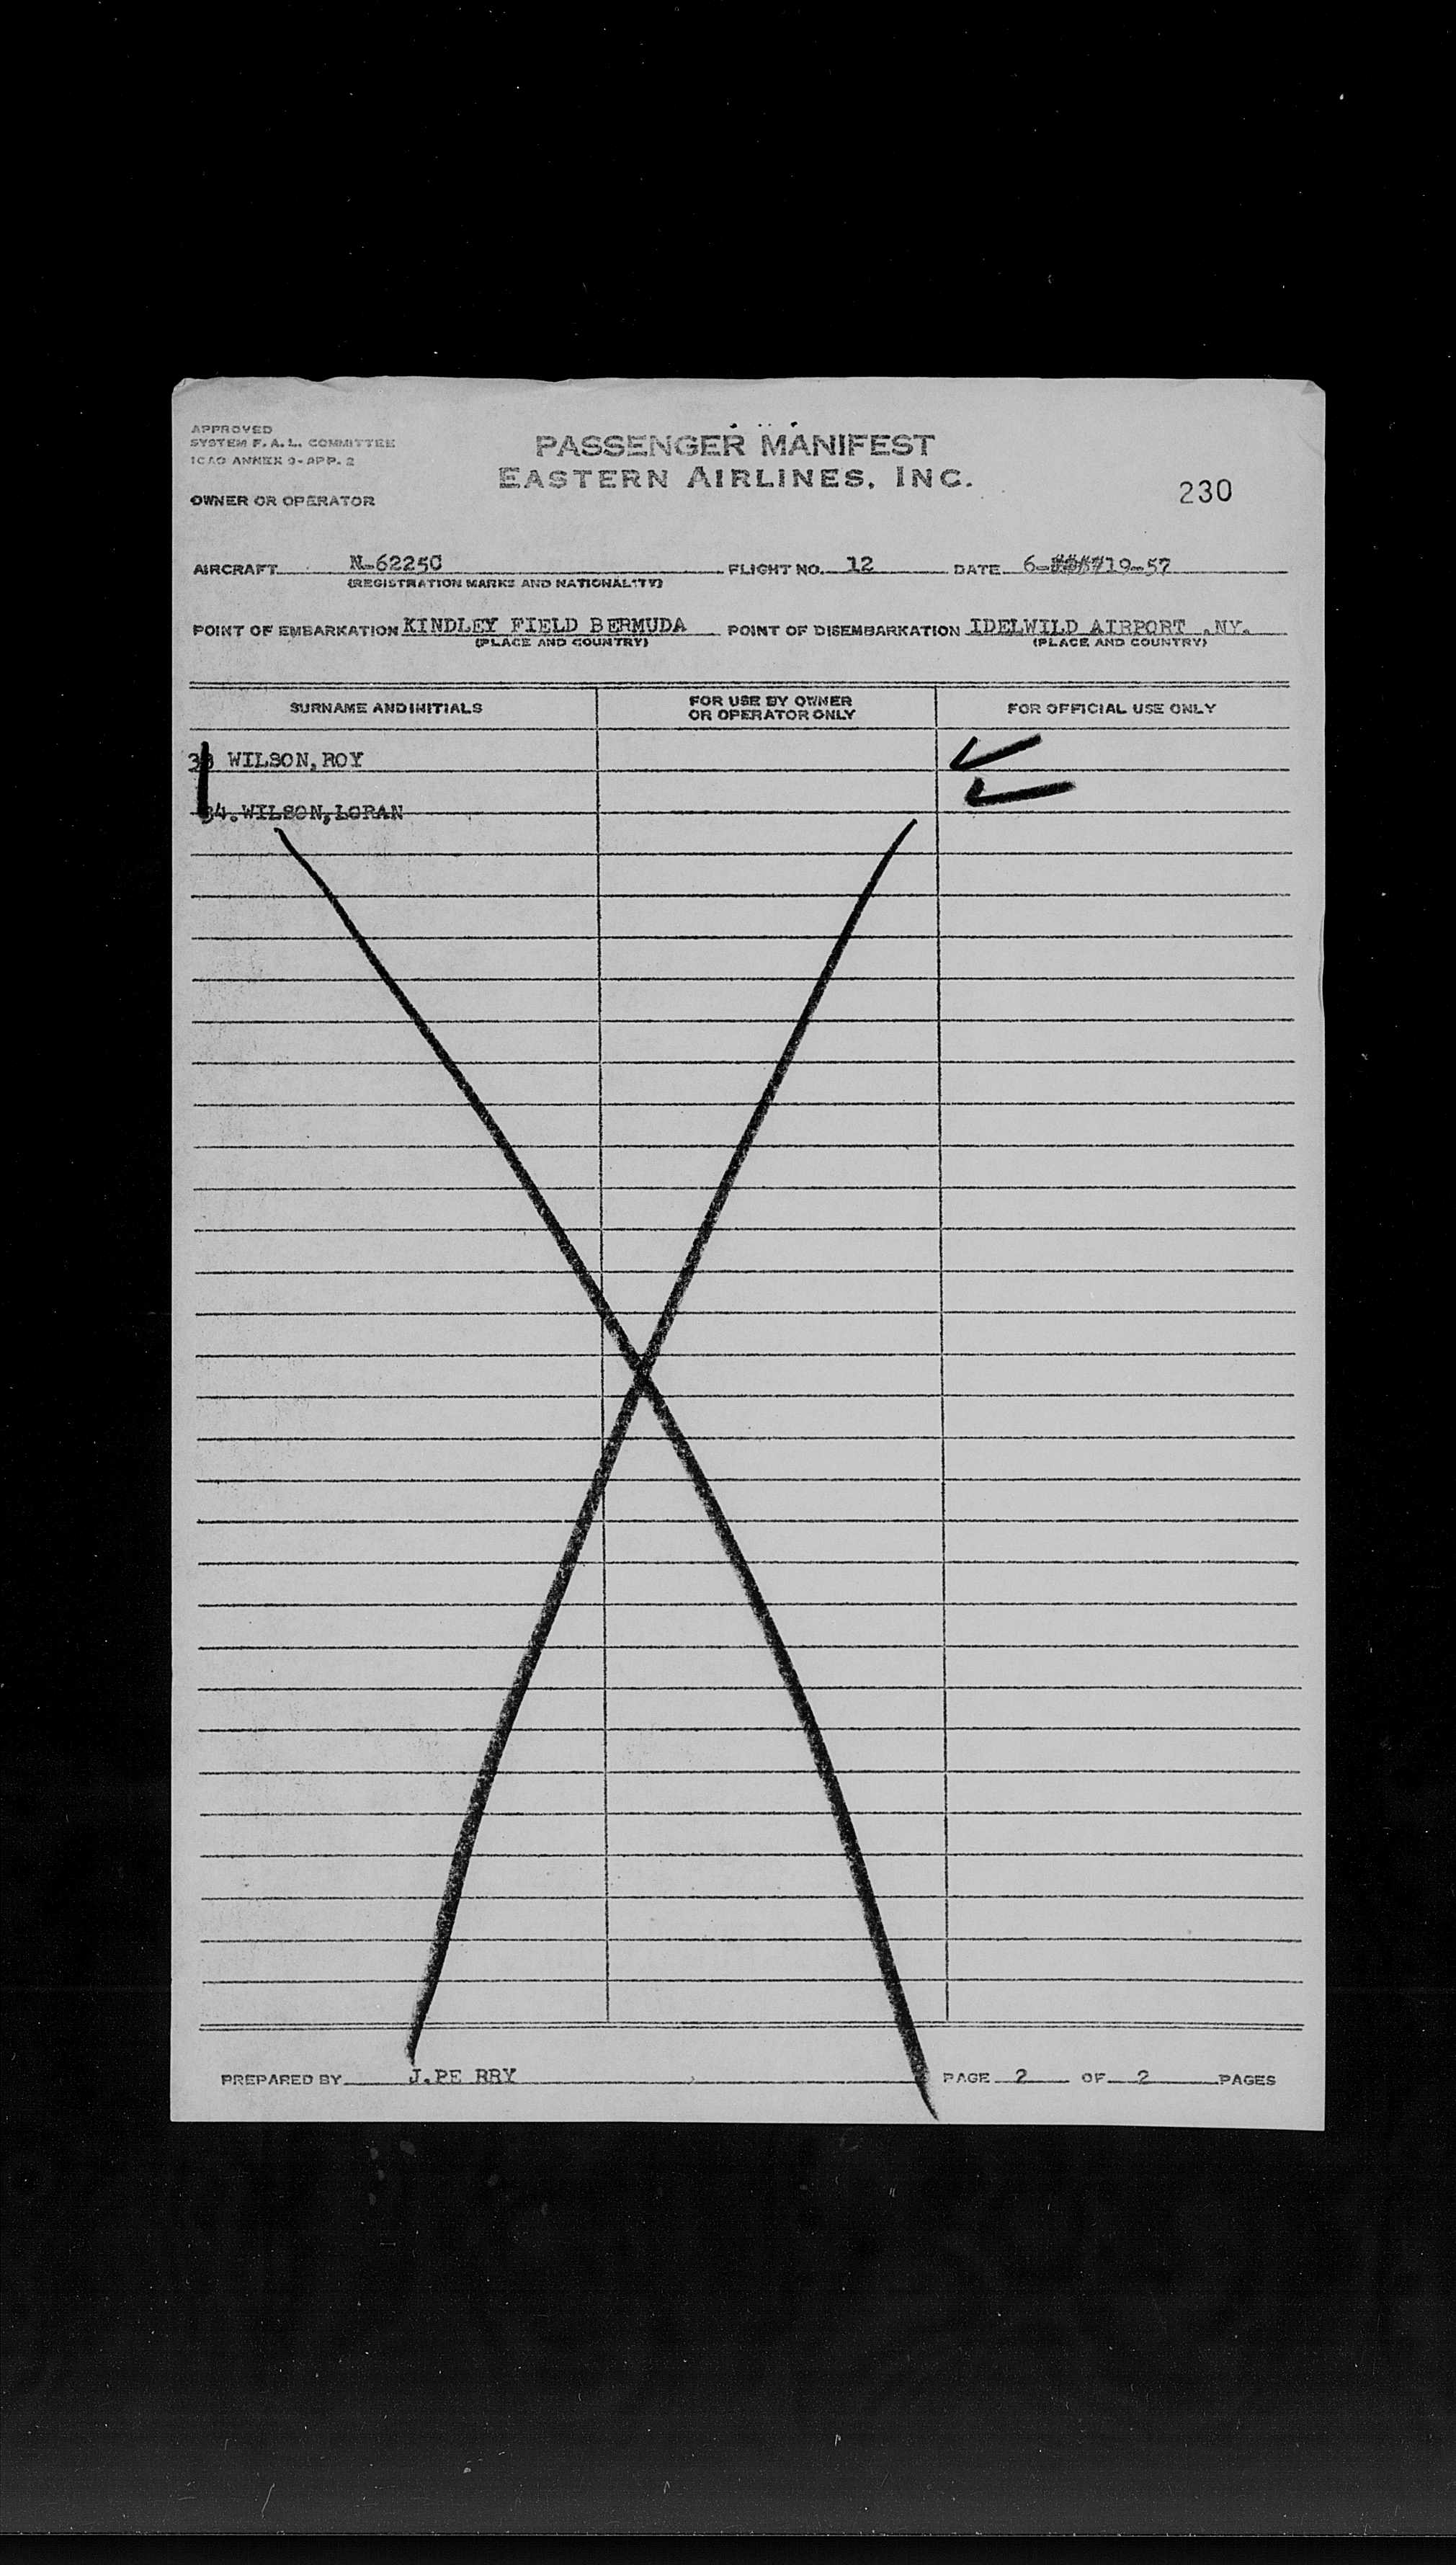 APPROVED
SYSTEM F.A.L. COMMITTEE
ICAO ANNEX 9-APP. 2
PASSENGER MANIFEST
EASTERN AIRLINES, INC.
OWNER OR OPERATOR
230
AIRCRAFT N-6225C FLIGHT NO. 12 DATE 6-19-57
(REGISTRATION MARKS AND NATIONALITY)
POINT OF EMBARKATION KINDLEY FIELD BERMUDA POINT OF DISEMBARKATION IDELWILD AIRPORT .NY.
(PLACE AND COUNTRY) (PLACE AND COUNTRY)
SURNAME AND INITIALS FOR USE BY OWNER OR OPERATOR ONLY FOR OFFICIAL USE ONLY
33 WILSON,ROY
34.WILSON,LORAN
PREPARED BY J.PE RRY PAGE 2 OF 2 PAGES